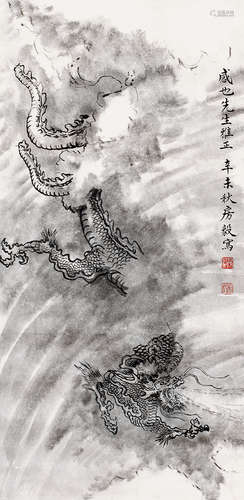 威也先生雅正
辛未秋房毅寫